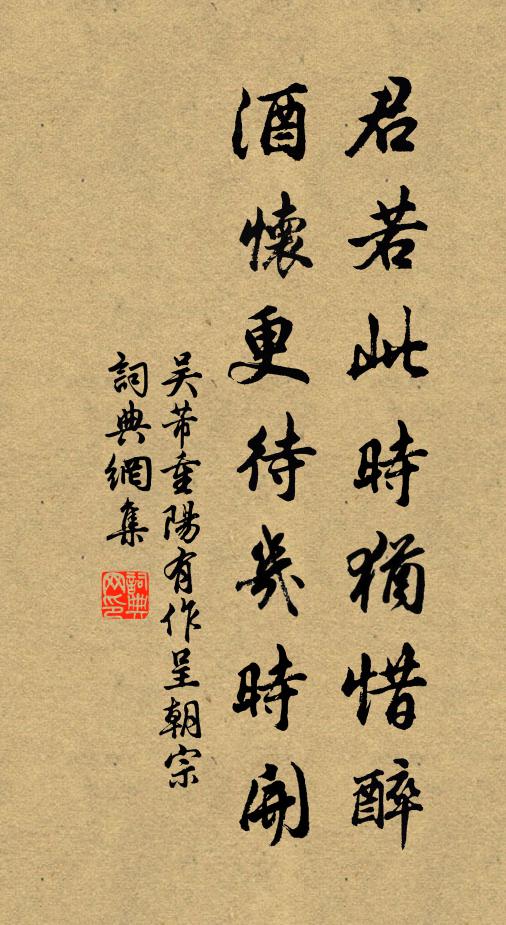 君若此時猶惜醉
酒懷更待幾時開
吴芾重陽有作呈朝宗
詞典網集
詞典网印